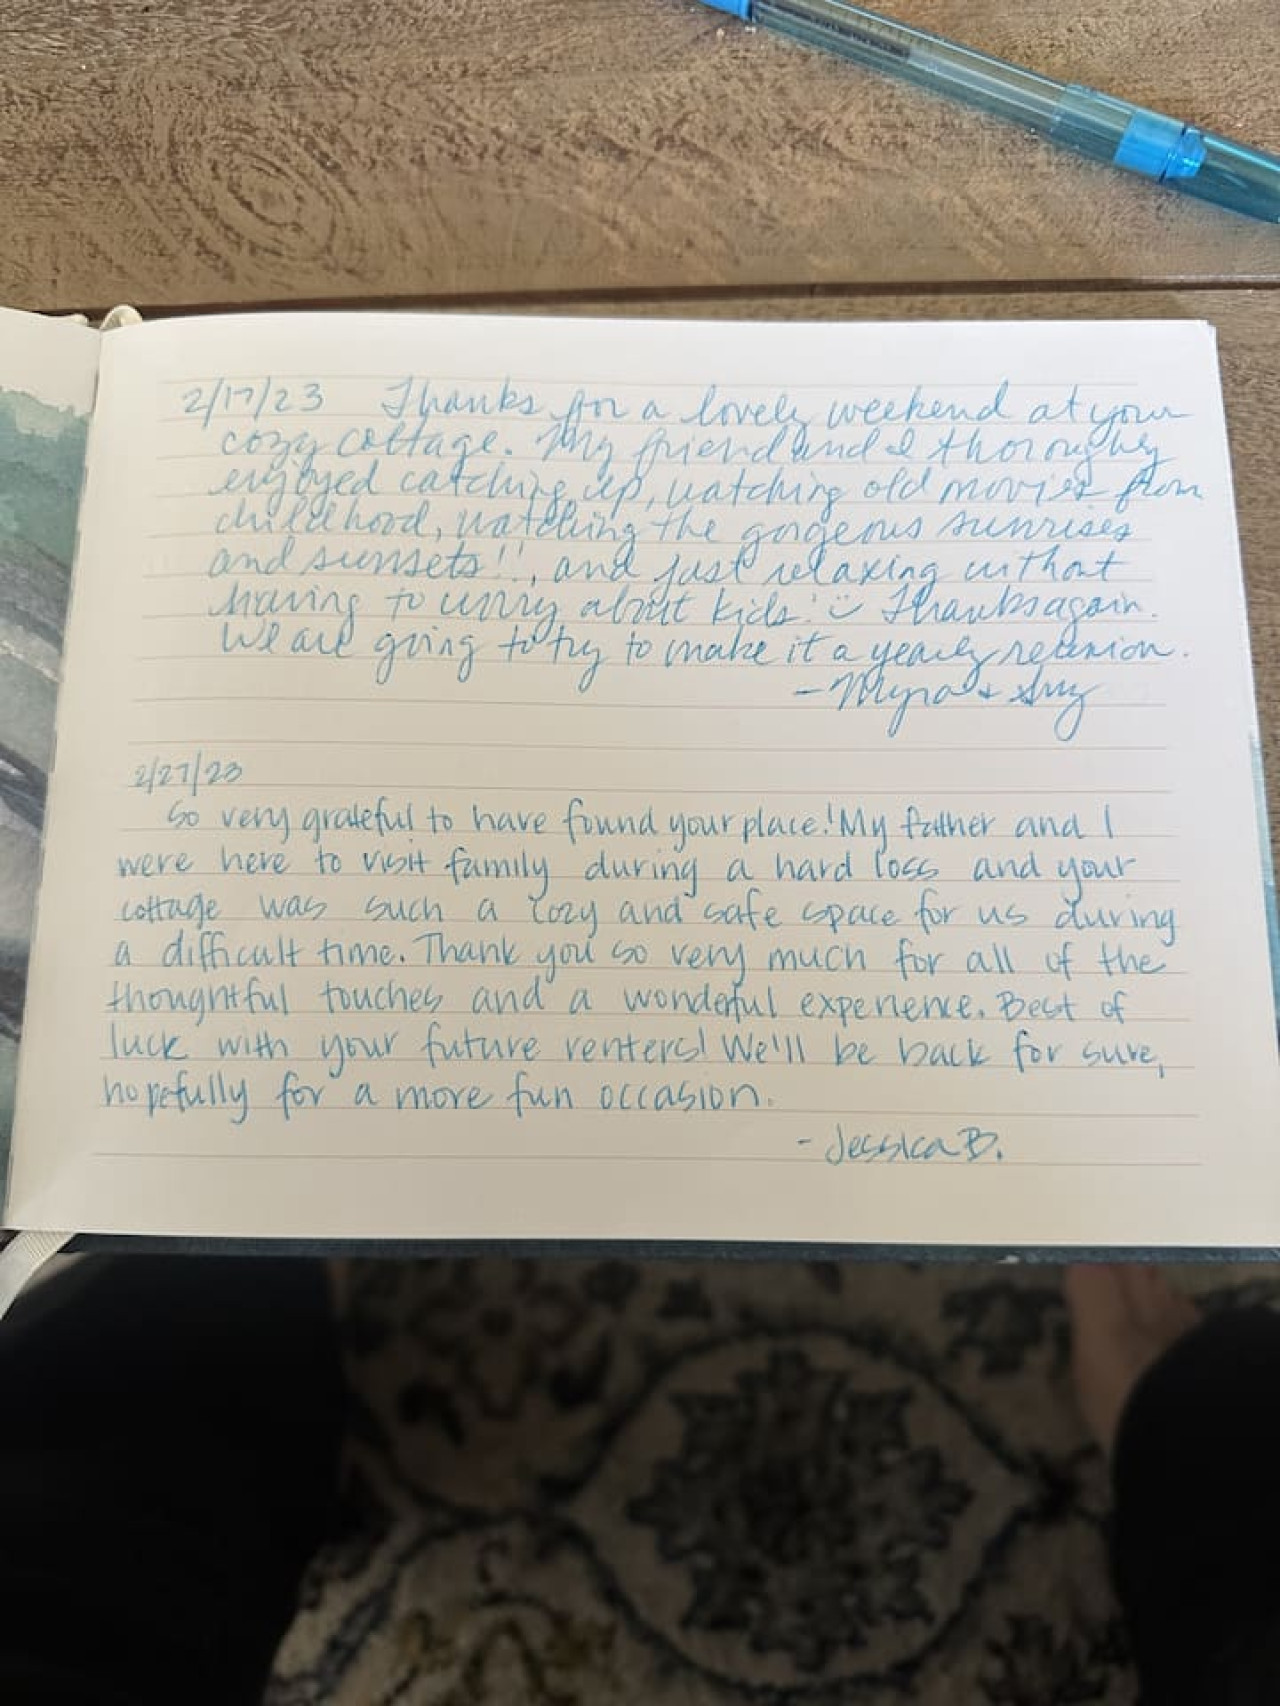 2/17/23 Thanks for a lovely weekend at your
cozy cottage. My friend and I thoroughly
enjoyed catching up, watching old movies from
childhood, watching the gorgeous sunrises
and sunsets!!, and just relaxing without
having to worry about kids! ü Thanks again.
We are going to try to make it a yearly reunion.
- Myra & Suz
2/27/23
So very grateful to have found your place! My father and I
were here to visit family during a hard loss and your
cottage was such a cozy and safe space for us during
a difficult time. Thank you so very much for all of the
thoughtful touches and a wonderful experience. Best of
luck with your future renters! We'll be back for sure,
hopefully for a more fun occasion.
- Jessica B.